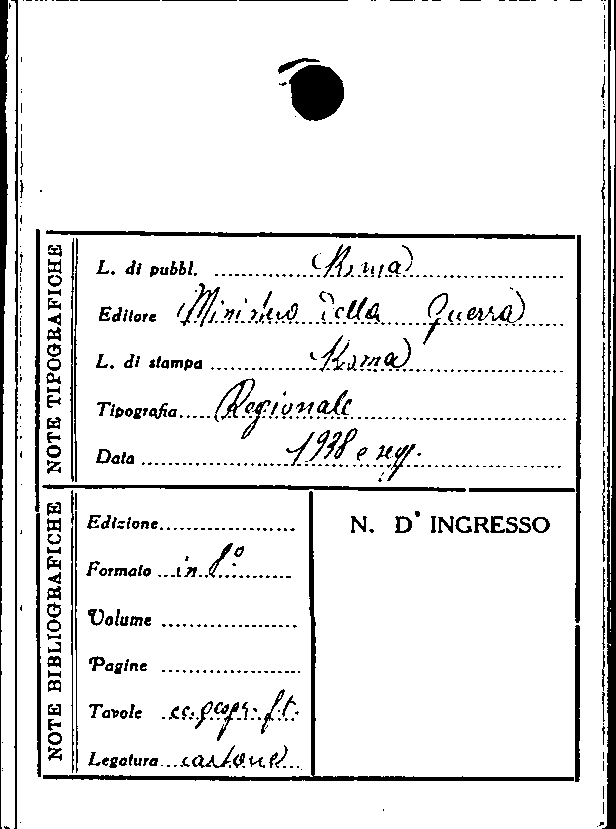 NOTE TIPOGRAFICHE
L. di pubbl. Roma
Editore Ministero della Guerra
L. di stampa Roma
Tipografia Regionale
Data 1938 e segg.
NOTE BIBLIOGRAFICHE
Edizione
Formato in 8°
Volume
Pagine
Tavole cc. geogr. f.t.
Legatura cartone
N. D' INGRESSO